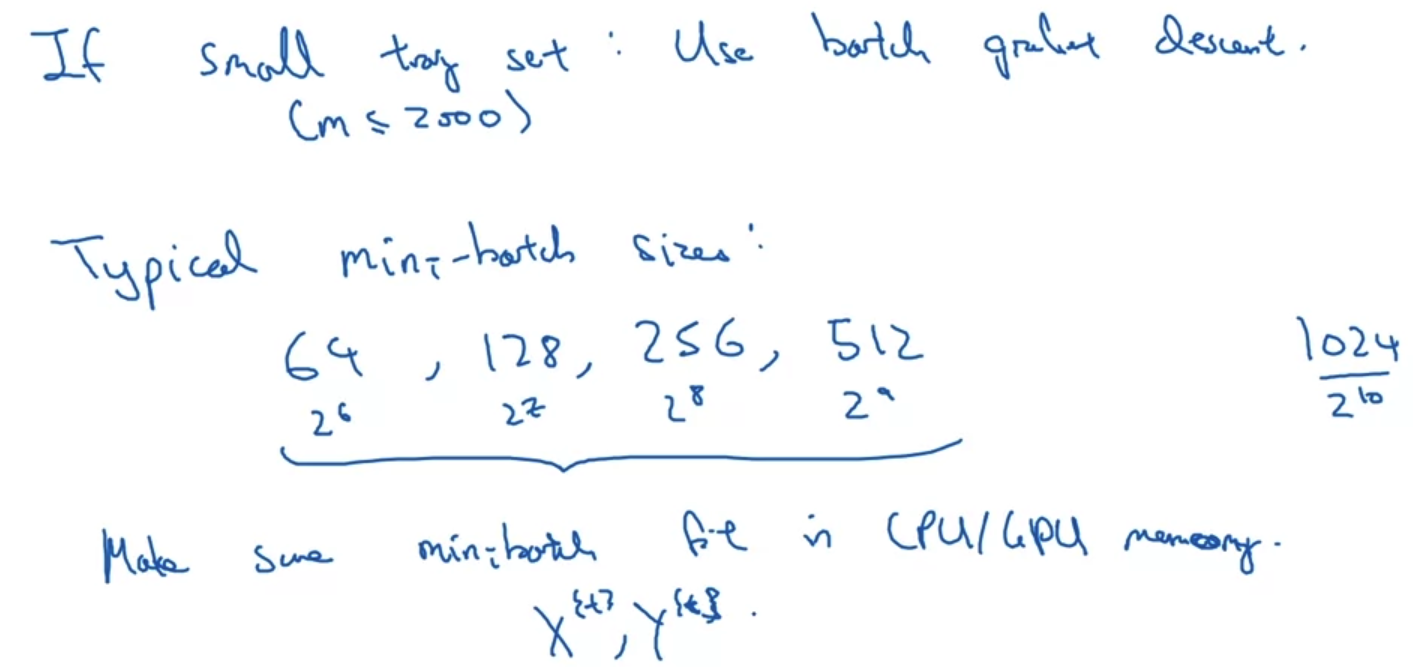 If small trag set : Use batch gradient descent.
(m ≤ 2000)
Typical mini-batch sizes :
64 , 128, 256, 512 1024
2^6 2^7 2^8 2^9 2^10
Make sure minibatch fit in CPU/GPU memory.
X^{t}, Y^{t} .